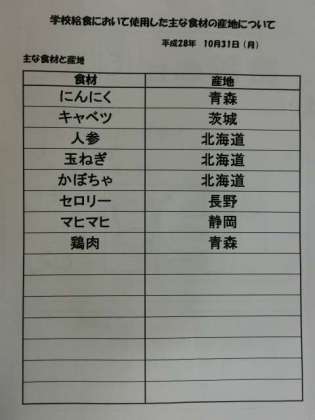 学校給食において使用した主な食材の産地について
平成28年 10月31日（月）
主な食材と産地
食材 産地
にんにく 青森
キャベツ 茨城
人参 北海道
玉ねぎ 北海道
かぼちゃ 北海道
セロリー 長野
マヒマヒ 静岡
鶏肉 青森